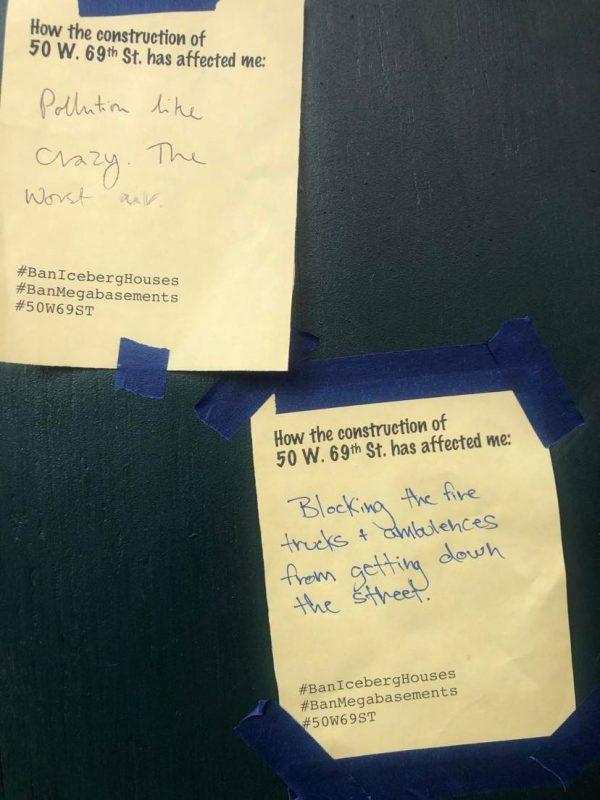 How the construction of
50 W. 69th St. has affected me:
Pollution like
crazy. The
worst air.
#BanIcebergHouses
#BanMegabasements
#50W69ST
How the construction of
50 W. 69th St. has affected me:
Blocking the fire
trucks + ambulences
from getting down
the street.
#BanIcebergHouses
#BanMegabasements
#50W69ST